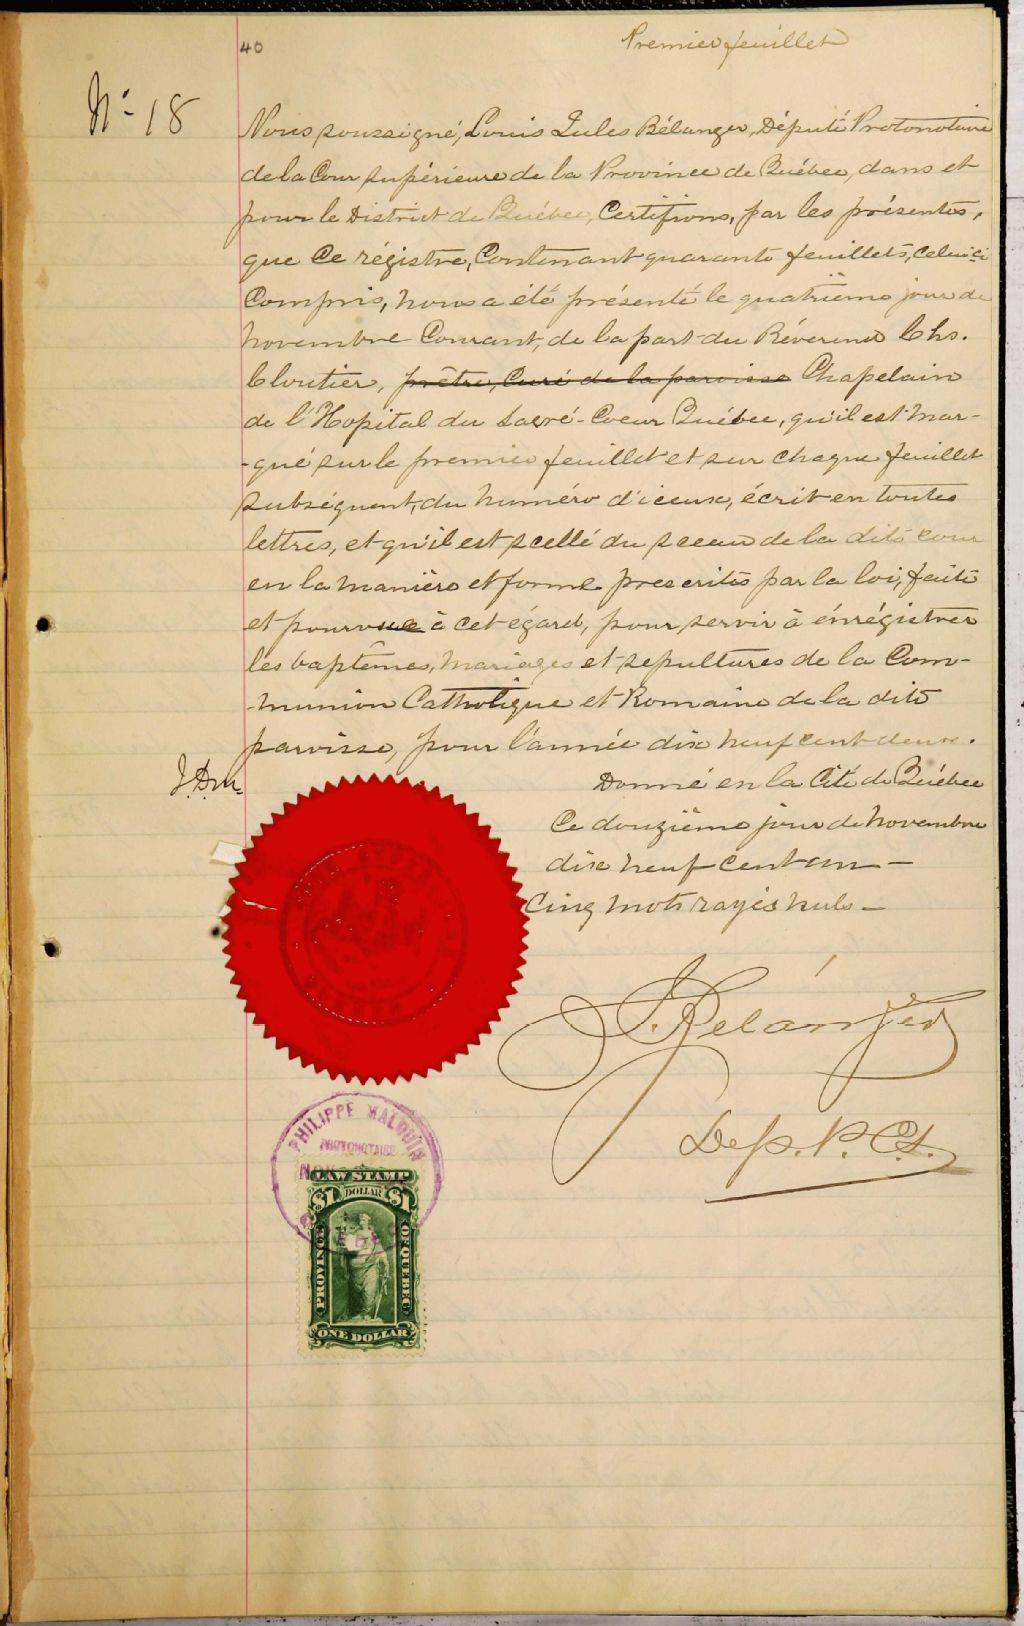 40
Premier feuillet
No 18
Nous soussigné, Louis Jules Bélanger, Député Protonotaire
de la Cour supérieure de la Province de Québec, dans et
pour le District de Québec, Certifions, par les présentes,
que Ce régistre, Contenant quarante feuillets, celui ci
Compris, nous a été présenté le quatrième jour de
novembre Courant, de la part du Révérend Chs.
Cloutier, prêtre, Curé de la paroisse Chapelain
de l'Hopital du Sacré-Coeur Québec, qu'il est mar-
-qué sur le premier feuillet et sur chaque feuillet
subséquent, du numéro d'iceux, écrit en toutes
lettres, et qu'il est scellé du sceau de la dite cour
en la manière et forme prescrites par la loi, faite
et pourvue à cet égard, pour servir à énrégistrer
les baptêmes, mariages et sepultures de la Com-
-munion Catholique et Romaine de la dite
paroisse, pour l'année dix neuf cent deux.
Donné en la Cité de Québec
Ce douzième jour de novembre
dix neuf cent un —
Cinq mots rayés nuls —
J. Bélanger
Dep. P. C. S.
PHILIPPE MALOUIN
PROTONOTAIRE
NOV
LAW STAMP
$1 DOLLAR $1
PROVINCE OF QUEBEC
ONE DOLLAR